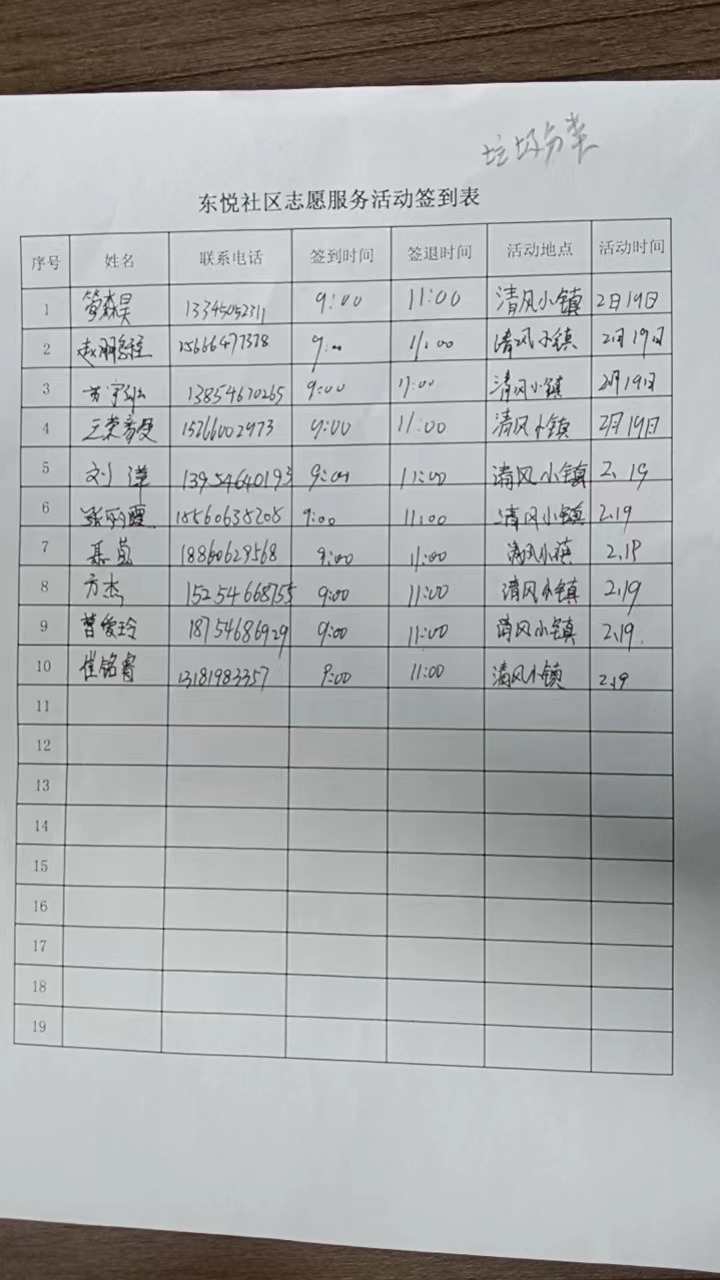 垃圾分类
东悦社区志愿服务活动签到表
序号 姓名 联系电话 签到时间 签退时间 活动地点 活动时间
1 管森昊 13345052311 9:00 11:00 清风小镇 2月19日
2 15666477378 9:00 11:00 清风小镇 2月19日
3 13854670265 9:00 11:00 清风小镇 2月19日
4 15266002973 9:00 11:00 清风小镇 2月19日
5 刘洋 13954640193 9:00 11:00 清风小镇 2.19
6 张丽霞 18560635208 9:00 11:00 清风小镇 2.19
7 18860629568 9:00 11:00 清风小镇 2.19
8 方杰 15254668755 9:00 11:00 清风小镇 2.19
9 曹爱玲 18754686929 9:00 11:00 清风小镇 2.19.
10 崔铭睿 13181983357 9:00 11:00 清风小镇 2.19
11
12
13
14
15
16
17
18
19